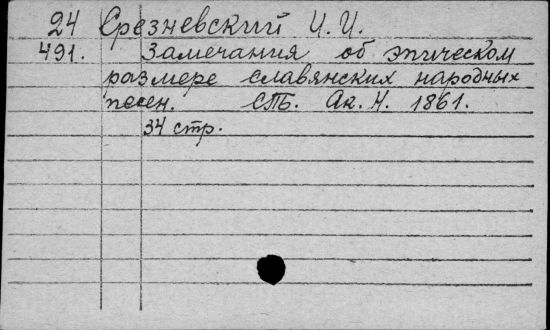 24 Срезневский И. И.
491. Замечания об эпическом
размере славянских народных
песен. СПб. Ак. Н. 1861.
34 стр.